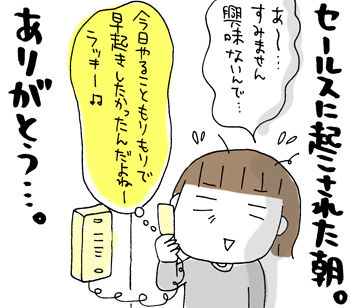 セールスに起こされた朝。
あ〜…
すみません
興味ないんで…
今日やることもりもりで
早起きしたかったんだよね〜
ラッキー♫
ありがとう…。